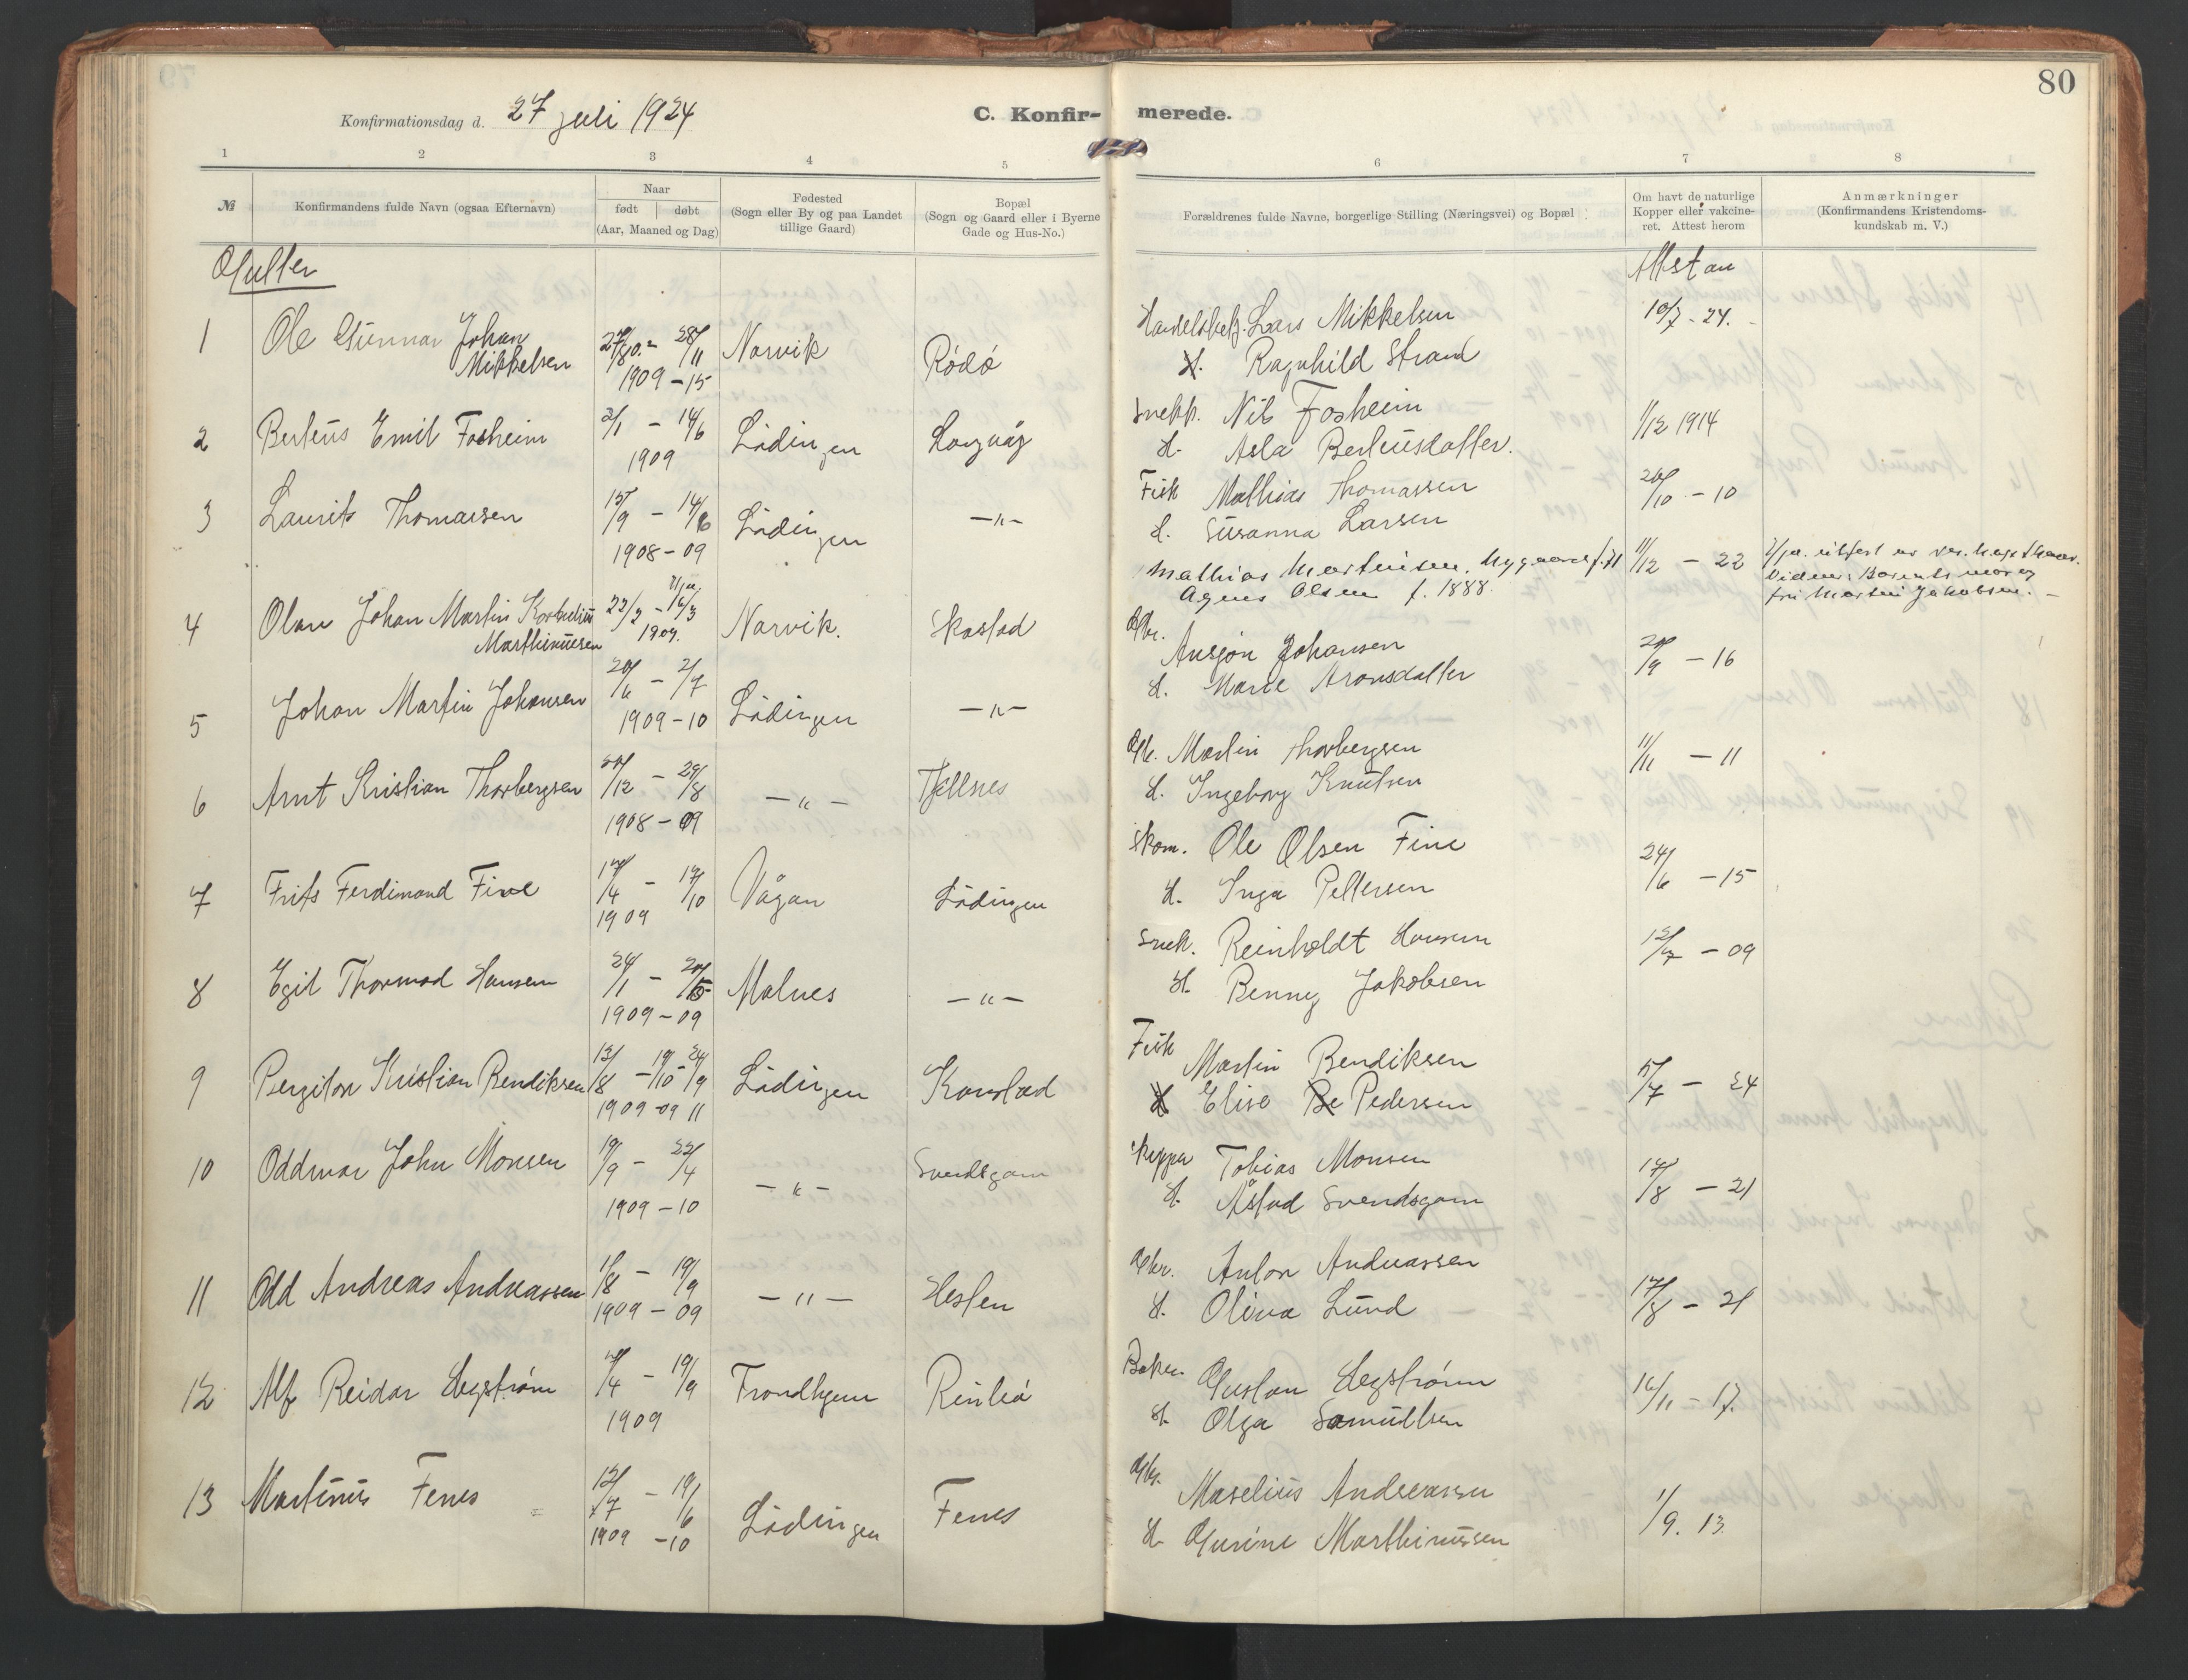 80
Konfirmationsdag d. 27 juli 1924
C. Konfir- merede.
1 2 3 4 5 6 7 8
№
Konfirmandens fulde Navn (ogsaa Efternavn)
Naar
født | døbt
(Aar, Maaned og Dag)
Fødested
(Sogn eller By og paa Landet
tillige Gaard)
Bopæl
(Sogn og Gaard eller i Byerne
Gade og Hus-No.)
Forældrenes fulde Navne, borgerlige Stilling (Næringsvei) og Bopæl
Om havt de naturlige
Kopper eller vakcine-
ret. Attest herom
Anmærkninger
(Konfirmandens Kristendoms-
kundskab m. V.)
Gutter
Attst an
1 Ole Gunnar Johan
Mikkelsen
27/10 - 28/11
1909 - 15
Narvik
Rödö
Lars Mikkelsen
Ragnhild Strand
10/7 - 24.
2 Berteus Emil Fosheim
2/1 - 14/6
1909
Lödingen
Långvåg
Snekk. Nils Fosheim
H. Asla Berteusdatter.
1/12 1914
3 Laurits Thomassen
15/9 - 14/6
1908 - 09
Lödingen
-"-
Fisk Mathias Thomassen
H. Susanna Larsen
20/10 - 10
4 Olav Johan Martin
Marthinussen
22/2 - 16/3
1909.
Narvik.
Skastad
Mathias Martinsen,
Agnes Olsen f. 1888.
11/12 - 22
fru Martin Jakobsen.
5 Johan Martin Johansen
20/6 - 2/7
1909 - 10
Lödingen
-"-
Gbr. Ansjön Johansen
H. Marie Aronsdatter
20/9 - 16
6 Arnt Kristian Thorbergsen
/12 - 29/8
1908 - 09
-"-
Tjellnes
Martin Thorbergsen
H. Ingeborg Knutsen
11/11 - 11
7 Frits Ferdinand Fine
17/4 - 17/10
1909
Vågan
Lödingen
Skom. Ole Olsen Fine
H. Inga Pettersen
24/6 - 15
8 Egil Thormod Hansen
24/1 - 20/5
1909 - 09
Malnes
-"-
Snek. Reinholdt Hansen
H. Benny Jakobsen
12/7 - 09
9 Bergiton Kristian Bendiksen
13/8 - 19/10 - 24/9
1909 - 09 11
Lödingen
Kanstad
Fisk Martin Bendiksen
H Elise Be Pedersen
5/7 - 24
10 Oddmar John Monsen
19/9 - 22/4
1909 - 10
-"-
Svendsgam
Skipper Tobias Monsen
H. Åslad Svendsgam
17/8 - 21
11 Odd Andreas Andreassen
11/8 - 19/9
1909 - 09
-"-
Hesten
Gbr. Anton Andreassen
H. Oliva Lund
17/8 - 21
12 Alf Reidar Legström
7/4 - 19/9
1909
Trondhjem
Rinleö
Baker Gustav Legström
H. Olga Samuelsen
16/11 - 17.
13 Martinus Fenes
12/7 - 19/6
1909 - 10
Lödingen
Fenes
Gbr. Maselius Andreassen
H Gurine Marthinussen
1/9. 13.